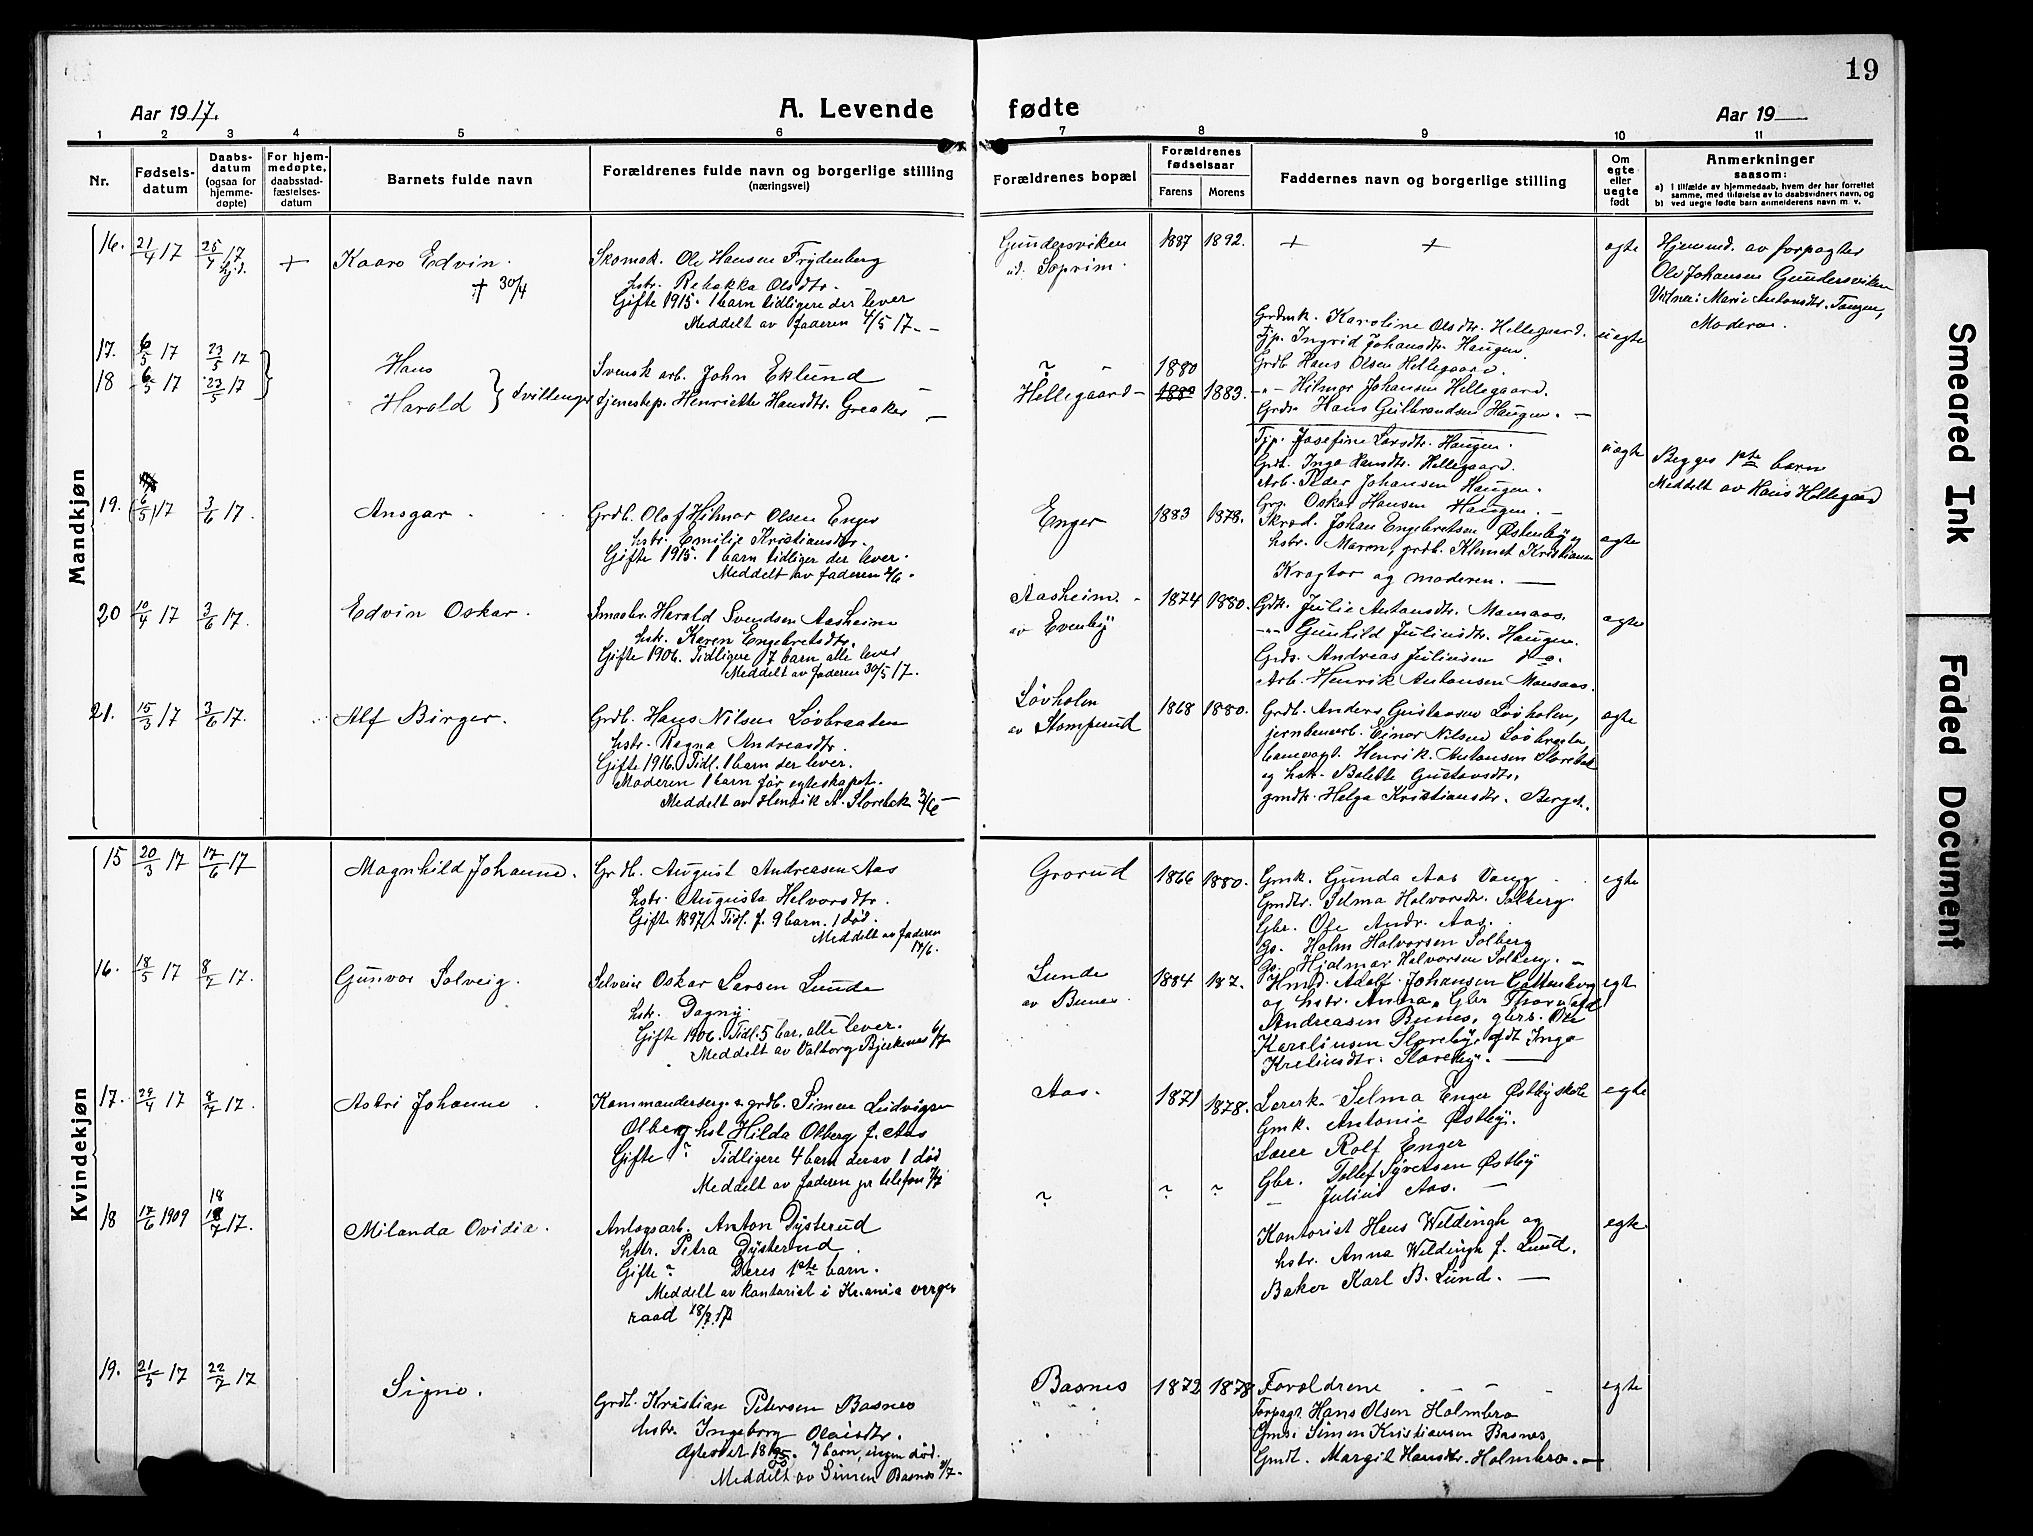 19
Aar 1917.
A. Levende fødte
Aar 19
1 2 3 4 5 6 7 8 9 10 11
Nr.
Fødsels-
datum
Daabs-
datum
(ogsaa for
hjemme-
døpte)
For hjem-
medøpte,
daabsstad-
fæstelses-
datum
Barnets fulde navn
Forældrenes fulde navn og borgerlige stilling
(næringsvei)
Forældrenes bopæl
Forældrenes
fødselsaar
Farens Morens
Faddernes navn og borgerlige stilling
Om
egte
eller
uegte
født
Anmerkninger
saasom:
a) i tilfælde av hjemmedaab, hvem der har forrettet
samme, med tilføielse av to daabsvidners navn, og
b) ved uegte fødte barn anmelderens navn m. v.
Mandkjøn
16. 21/4 17 25/4 17 hjd. + Kaare Edvin.
+ 30/4
Skomak. Ole Hansen Frydenberg
hstr. Rebekka Olsdtr.
Gifte 1915. 1 barn tidligere der lever
Meddelt av faderen 4/5 17.
Gundersviken
Soprim.
1887 1892. + + egte
Hjemmed. av forpagter
Ole Johansen Gundersviken
Vidner: Marie Antonsdtr. Tangen,
Moderen.
17. 6/5 17 23/5 17 Hans
18 6/5 17 23/5 17 Harald } tvillinger
Svensk arb. John Eklund
tjenestep. Henriette Hansdtr. Greaker
Hellegaard
1880
1880 1883.
Grdmk. Karoline Olsdtr. Hellegaard.
Tjp. Ingrid Johansdtr. Haugen.
Grdb Hans Olsen Hellegaard.
-"- Hilmar Johansen Hellegaard.
Grds. Hans Gulbrandsen Haugen.
uegte
Tjp. Josefine Larsdtr. Haugen.
Grdt. Inga Hansdtr. Hellegaard.
Arb. Peder Johansen Haugen.
Grs. Oskar Hansen Haugen.
uegte
Begges 1ste barn
Meddelt av Hans Hellegaard
19. 6/5 17 3/6 17. Ansgar.
Grdb. Olaf Hilmar Olsen Enger
hstr. Emilie Kristiansdtr.
Gifte 1915. 1 barn tidliger der lever.
Meddelt av faderen 3/6.
Enger 1883 1878.
Skræd. Johan Engebretsen Østenby og
hstr. Maren, grdb. Klemet Kristiansen
Krogtor og moderen.
egte
20 10/4 17 3/6 17. Edvin Oskar.
Smaabr. Harald Svendsen Aasheim
hstr. Karen Engebretsdtr.
Gifte 1906. Tidligere 7 barn, alle lever
Meddelt av faderen 30/5 17.
Aasheim
av Evenby
1874 1880.
Grdk. Julie Antonsdtr. Monsaas.
-"- Gunhild Juliusdtr. Haugen.
Grds. Andreas Juliusen do.
Arb. Henrik Antonsen Monsaas.
egte
21. 15/3 17 3/6 17. Alf Birger.
Grdb. Hans Nilsen Løvbraaten
hstr. Ragna Andreasdtr.
Gifte 1916. Tidl. 1 barn der lever.
Moderen 1 barn før egteskapet.
Meddelt av Henrik A. Slorebek 3/6
Løvholen
av Stomperud
1868 1880.
Grdb. Anders Gustavsen Løvholen,
jernbanearb. Einar Nilsen Løvbraaten
banevogt. Henrik Antonsen Slorebek
og hstr. Bolette Gustavsdtr.
gmdt. Helga Kristiansdtr. Berget.
egte
Kvindekjøn
15 20/3 17 17/6 17 Magnhild Johanne.
Grdb. August Andreasen Aas
hstr. Augusta Halvorsdtr.
Gifte 1897. Tidl. f. 9 barn. 1 død.
Meddelt av faderen
17/6.
Grorud 1866 1880.
Gmk. Gunda Aas Vang
Gmdtr. Selma Halvorsdtr. Solberg.
Gbr. Ole Andr. Aas.
Gs. Holm Halvorsen Solberg
Gs. Hjalmar Halvorsen Solberg.
egte
16. 18/5 17 8/7 17. Gunvor Solveig.
Selveier Oskar Larsen Lunde
hstr. Dagny.
Gifte 1906. Tidl. 5 bar, alle lever.
Meddelt av Valborg Bjerkenes 6/7
Lunde
av Bunes.
1884 187.
Hmd. Adolf Johansen Gottenborg
og hstr. Anna, Gbr Thorvald
Andreasen Bunes, gbrs. Ole
Karelinsen Sloreby, gdt Inga
Krelinsdtr. Sloreby.
egte
17. 29/4 17 8/7 17. Astri Johanne
Kommandersergt. grdb. Simen Ludvigsen
Olberg hst Hilda Olberg f. Aas
Gifte ? Tidligere 4 barn derav 1 død
Meddelt av faderen pr telefon 7/7
Aas. 1871 1878.
Lærerk. Selma Enger Østby skole
Gmk. Antonie Østby.
Lærer Rolf Enger
Gbr. Tollef Syversen Østby
- Julius Aas.
egte
18 17/6 1909 18/7 17. Milanda Ovidia.
Anlægsarb. Anton Dysterud
hstr. Petra Dysterud
Gifte ? Deres 1ste barn.
Meddelt av kontorist i Kr.ania verge
raad 18/7 17
? ? ?
Kontorist Hans Weldingh og
hstr. Anna Weldingh f. Lund.
Baker Karl B. Lund.
egte
19. 21/5 17 22/7 17 Signe.
Grdb. Kristian Petersen Basnes
hstr. Ingeborg Olaisdtr.
Egteviet 1895. 7 barn, ingen død.
Meddelt av Simen Basnes 2/7.
Basnes 1872 1878
Forældrene
Forpagt. Hans Olsen Holmbro
Gmds Simen Kristiansen Basnes
Gmdt. Margit Hansdtr. Holmbro.
egte
Smeared Ink
Faded Document